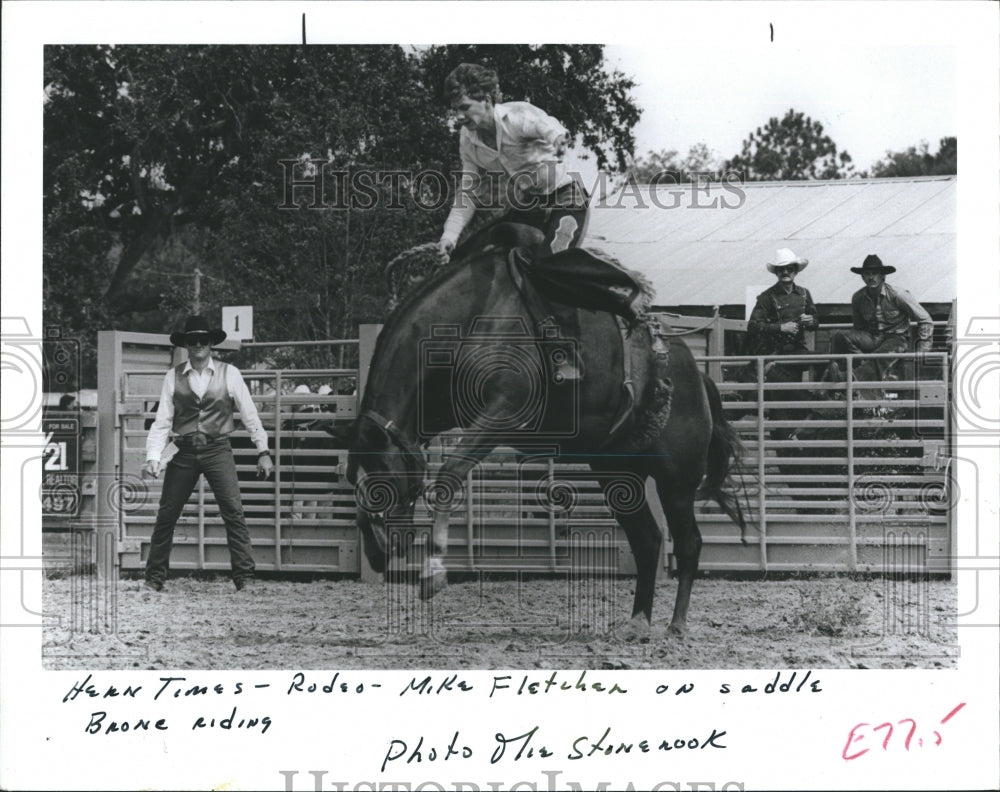 HISTORIC IMAGES
1
FOR SALE
21
REALTOR
497
Hern Times - Rodeo - Mike Fletcher on saddle
Bronc riding
Photo Olie Stonerook
E77.5